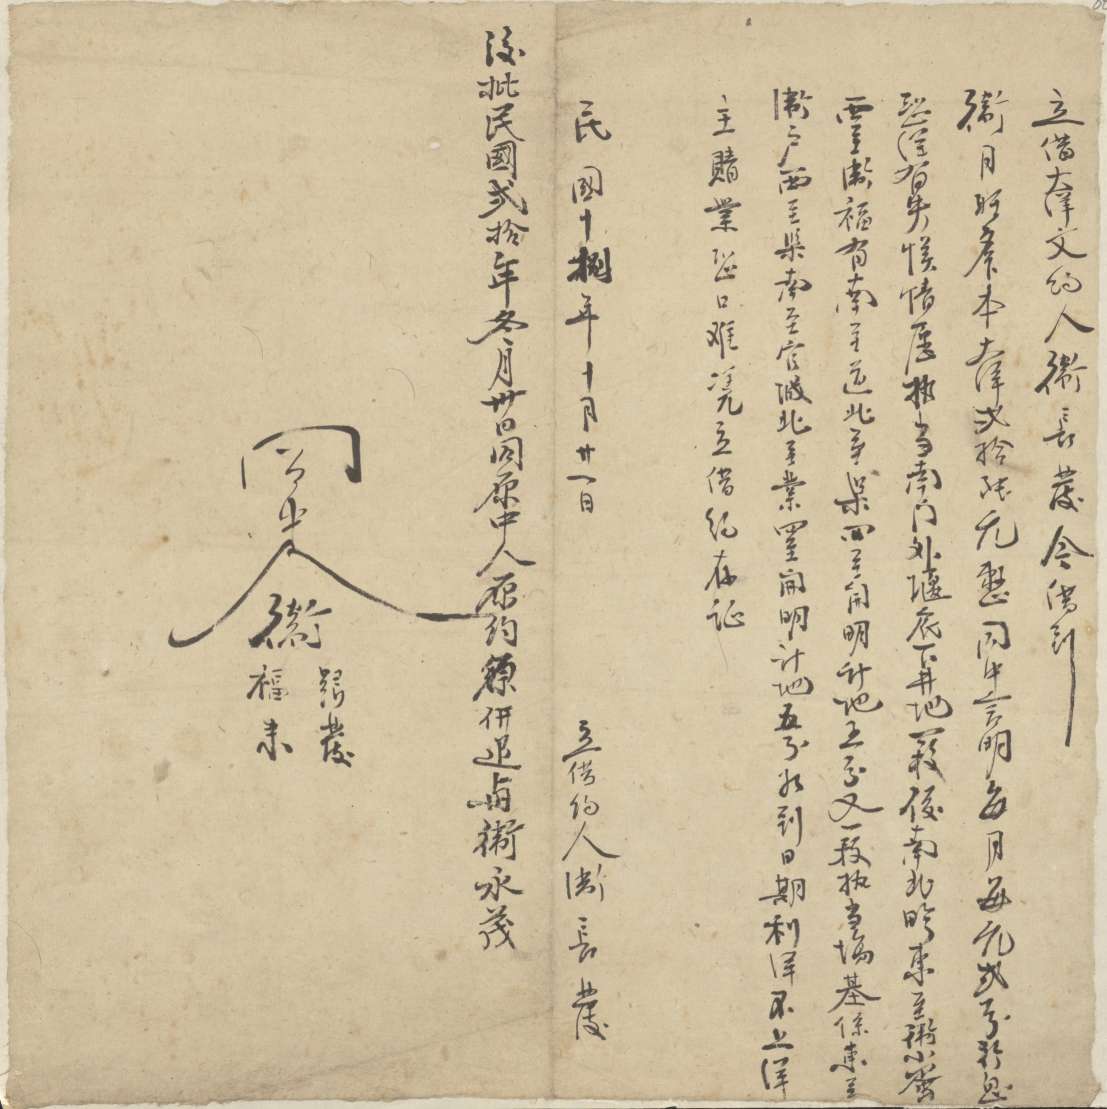 立借大洋文約人衛長發今借到
衛月 名下本大洋弍拾 元整同中言明每月每元弍分行息
恐後有失悞情愿執當南门外堰底下井地一段係南北畛東至衛小蛮
西至衛福有南至道北至渠四至開明計地五分又一段执当場基係東至
衛户西至渠南至官城北至業四至開明計地五分如到日期利洋不上洋
主贖業恐口难凭立借約存証
民國十捌年十月廿一日 立借約人衛長發
後批民國弍拾年冬月卅日同原中人原約原併退與衛永茂
同中人衛
銀發
福来